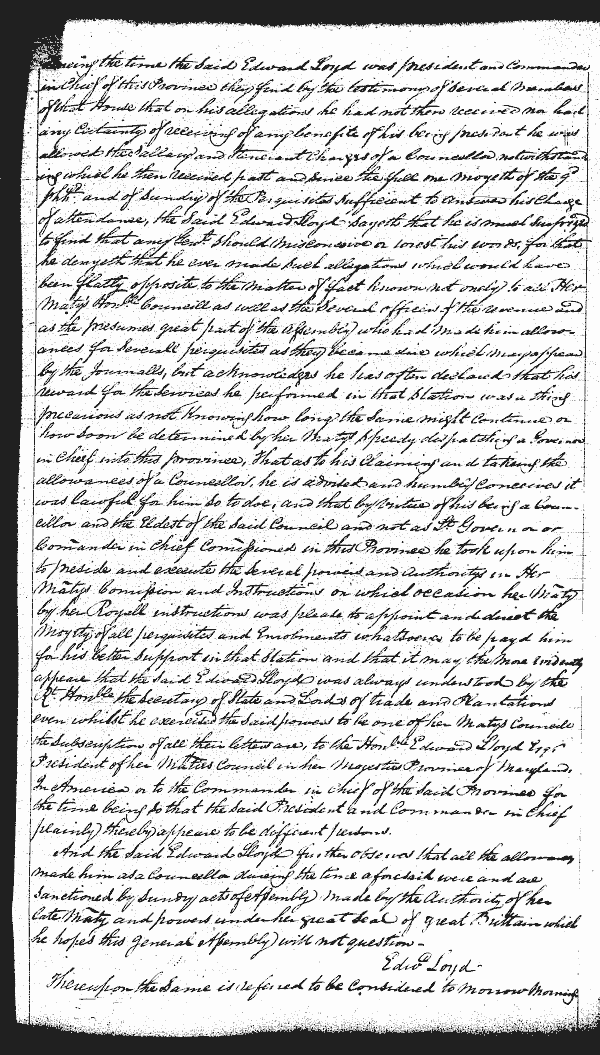 during the time the Said Edward Loyd was president and Commander
in Chief of this Province they find by the testimony of Several Members
of that House that on his allegations he had not then received nor had
any Certainty of receiving of any benefits of his being president he was
allowed the Sallary and Itenerant Charges of a Councellor notwithstand
ing which he then received part and Since the full one Moyety of the
and of Sundry of the Perquisites Sufficient to answer his Charge
of attendance, the Said Edward Lloyd Sayeth that he is much Surprized
to find that any Gent. Should Misconceive or wrest his words, for that
he denyeth that he ever made Such allegations which would have
been flatly opposite to the Matter of fact known not onely to all Her
Matys Honble Councill as well as the Several officers of the revenue and
as he presumes great part of the Assembly who had Made him allow-
ances for Severall perquisites as they became due which may appear
by the Journalls, but acknowledges he has often declared that his
reward for the Services he performed in that Station was a thing
precarious as not knowing how long the Same might Continue or
how Soon be determined by her Matys Speedy dispatching a Governor
in Chief into this province, That as to his Claiming and taking the
allowances of a Councellor, he is advised and humbly Conceives it
was lawful for him So to doe, and that by Virtue of his being a Coun-
cellor and the Eldest of the Said Council and not as Lt Governor or
Comander in Chief Comissioned in this Province he took upon him
to preside and execute the Several powers and Authoritys in Her
Matys Comission and Instructions on which occasion her Maty
by her Royall instructions was please to appoint and direct the
Moyety of all perquisites and Emolments whatsoever to be payd him
for his better Support in that Station and that it may the More Evidently
appear that the Said Edward Lloyd was always understood by the
Rt Honble the Secretary of State and Lords of trade and Plantations
even whilst he exercised the Said powers to be one of her Matys Council
the Subscription of all their letters are, to the Honble Edward Lloyd Esqr
President of her Matties Council in her Majesties Province of Maryland,
In America or to the Commander in Chief of the Said Province for
the time being So that the Said President and Commander in Chief
plainly thereby appeare to be different persons.
And the Said Edward Lloyd further observes that all the allowances
made him as a Councellor dureing the time aforesaid were and are
Sanctioned by Sundry acts of Assembly Made by the Authority of her
late Maty and powers under her great Seal of great Brittain which
he hopes this General Assembly will not question-
Edwd Loyd-
Thereupon the Same is referred to be Considered to Morrow Morning